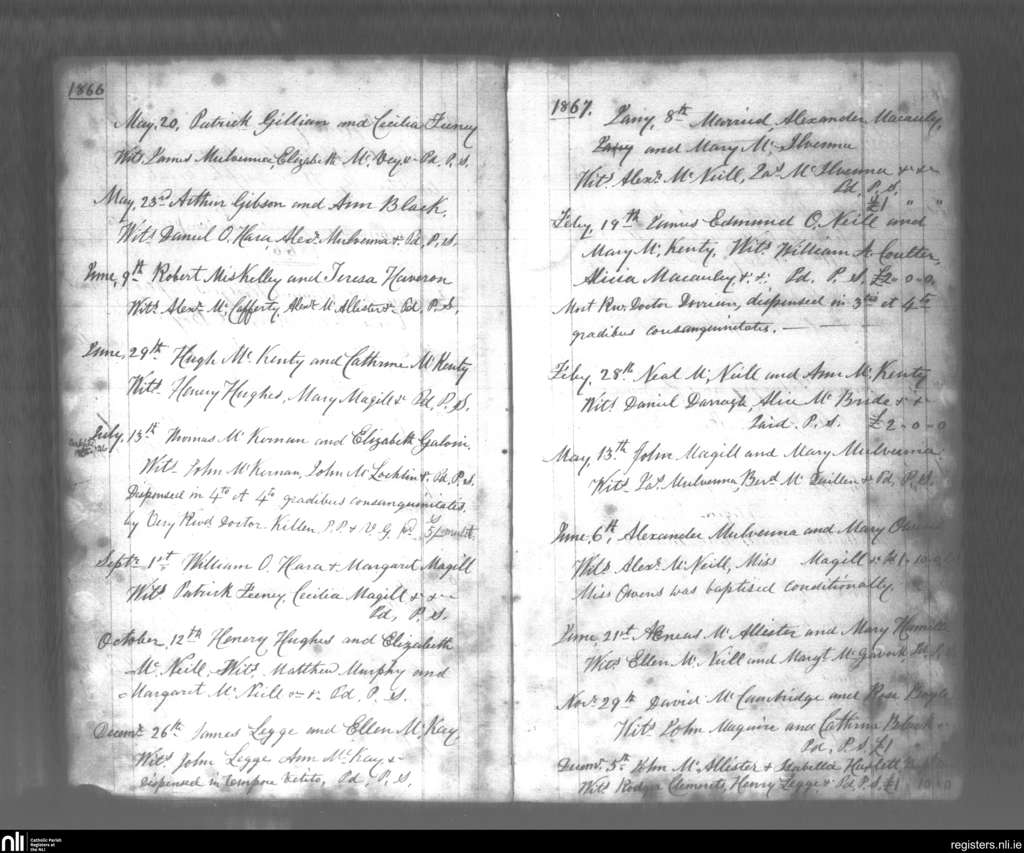 1866
May, 20, Patrick Gillian and Cecilia Feeney
Wits. James Mulvenna, Elizabeth Mc Vey, & Pd, P, S.
May, 23rd Arthur Gibson and Ann Black,
Wits. Daniel O, Hara Alexr. Mulvenna & Pd, P, S.
June, 9th Robert MisKelley and Teresa Haveron
Wits. Alexr. Mc Cafferty, Alexr. Mc Allister & Pd, P. S,
June, 29th Hugh Mc Kenty and Cathrine Mc Kenty
Wits. Henery Hughes, Mary Magill & Pd, P. S.
July, 13th Thomas Mc Kernan and Elizabeth
Wits. John Mc Kernan, John Mc Locklin & Pd, P, S.
Dispensed in 4to et 4to gradibus consanguinitatis
by Very Revd Doctor Killen P.P. & V. G,
Septr 1st William O. Hara & Margaret Magill
Wits Patrick Feeney, Cecilia Magill & &
Pd, P, S.
October, 12th Henery Hughes and Elizabeth
Mc Neill, Wits, Matthew Murphy and
Margaret Mc Neill & Pd. P. S.
Decemr. 26th James Legge and Ellen Mc Kay
Wits John Legge Ann Mc Kay, &
dispensed in tempore vetito, Pd, P, S,
1867. Jany, 8th Married, Alexander Macauly,
Jany and Mary Mc Ilvenna
Wits Alexr. Mc Neill, Jas Mc Ilvenna & &
Pd, P, S,
£1 " "
Feby, 19th James Edmund O, Neill and
Mary Mc Kenty, Wits William A. Coulter,
Alicia Macauley & & Pd, P. S, £2-0-0,
Most Rev. Doctor Dorrian, dispensed in 3rd et 4to
gradibus consanguinitatis.
Feby, 28th Neal Mc Neill and Ann Mc Kenty
Wits Daniel Darragh, Alice Mc Bride & &
Paid. P. S. £2-0-0
May, 13th John Magill and Mary Mulvenna
Wits. Jas. Mulvenna, Bernd Mc Quillen & Pd, P. S.
June 6th, Alexander Mulvenna and Mary
Wits Alexr. Mc Neill, Miss Magill & £1-10-0
Miss Owens was baptised conditionally
June, 21st Aeneas Mc Allister and Mary
Wits Ellen Mc Neill and Margt Mc Gavock
Novr 29th David Mc Cambridge and Rose Boyle
Wits John Maguire and Cathrine Black
Pd, P. S. £1
Decemr. 5th John Mc Allister & Isabella Haslett
Wits Rodger Clements, Henry Legge & Pd, P, S, £1 10-0
nli
Catholic Parish
Registers at
the NLI
registers.nli.ie